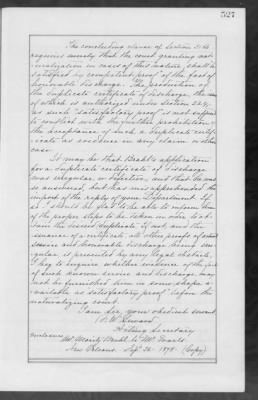 527
The concluding clause of Section 2166
requires merely that the court granting nat-
uralization in cases of this nature, shall be
satisfied by competent proof of the fact of
honorable discharge. The production of
the duplicate certificate of discharge, the issue
of which is authorized under section 224,
as such "satisfactory proof" is not supposed
to conflict with the further prohibition of
the acceptance of such a duplicate certifi-
cate as evidence in any claim or other
case.
It may be that Brahl's application
for a duplicate certificate of discharge
was irregular or defective, and that he was
so answered, but has misapprehended the
import of the reply of your Department. If
so I should be glad to be able to inform him
of the proper steps to be taken in order to ob-
tain the desired duplicate. If not, and the
issuance of a certificate, all other proofs of actual
service and honorable discharge being
regular is prevented by any legal obstacle,
I beg to inquire whether evidence of the fact
of such known service and discharge may
not be furnished him in some shape
available as satisfactory proof before the
naturalizing court.
I am Sir, your obedient servant
F. W. Seward
Acting Secretary
Enclosure
Mr. Moritz Brahl to Mr.
New Orleans Sep. 26. 1878. (Copy)